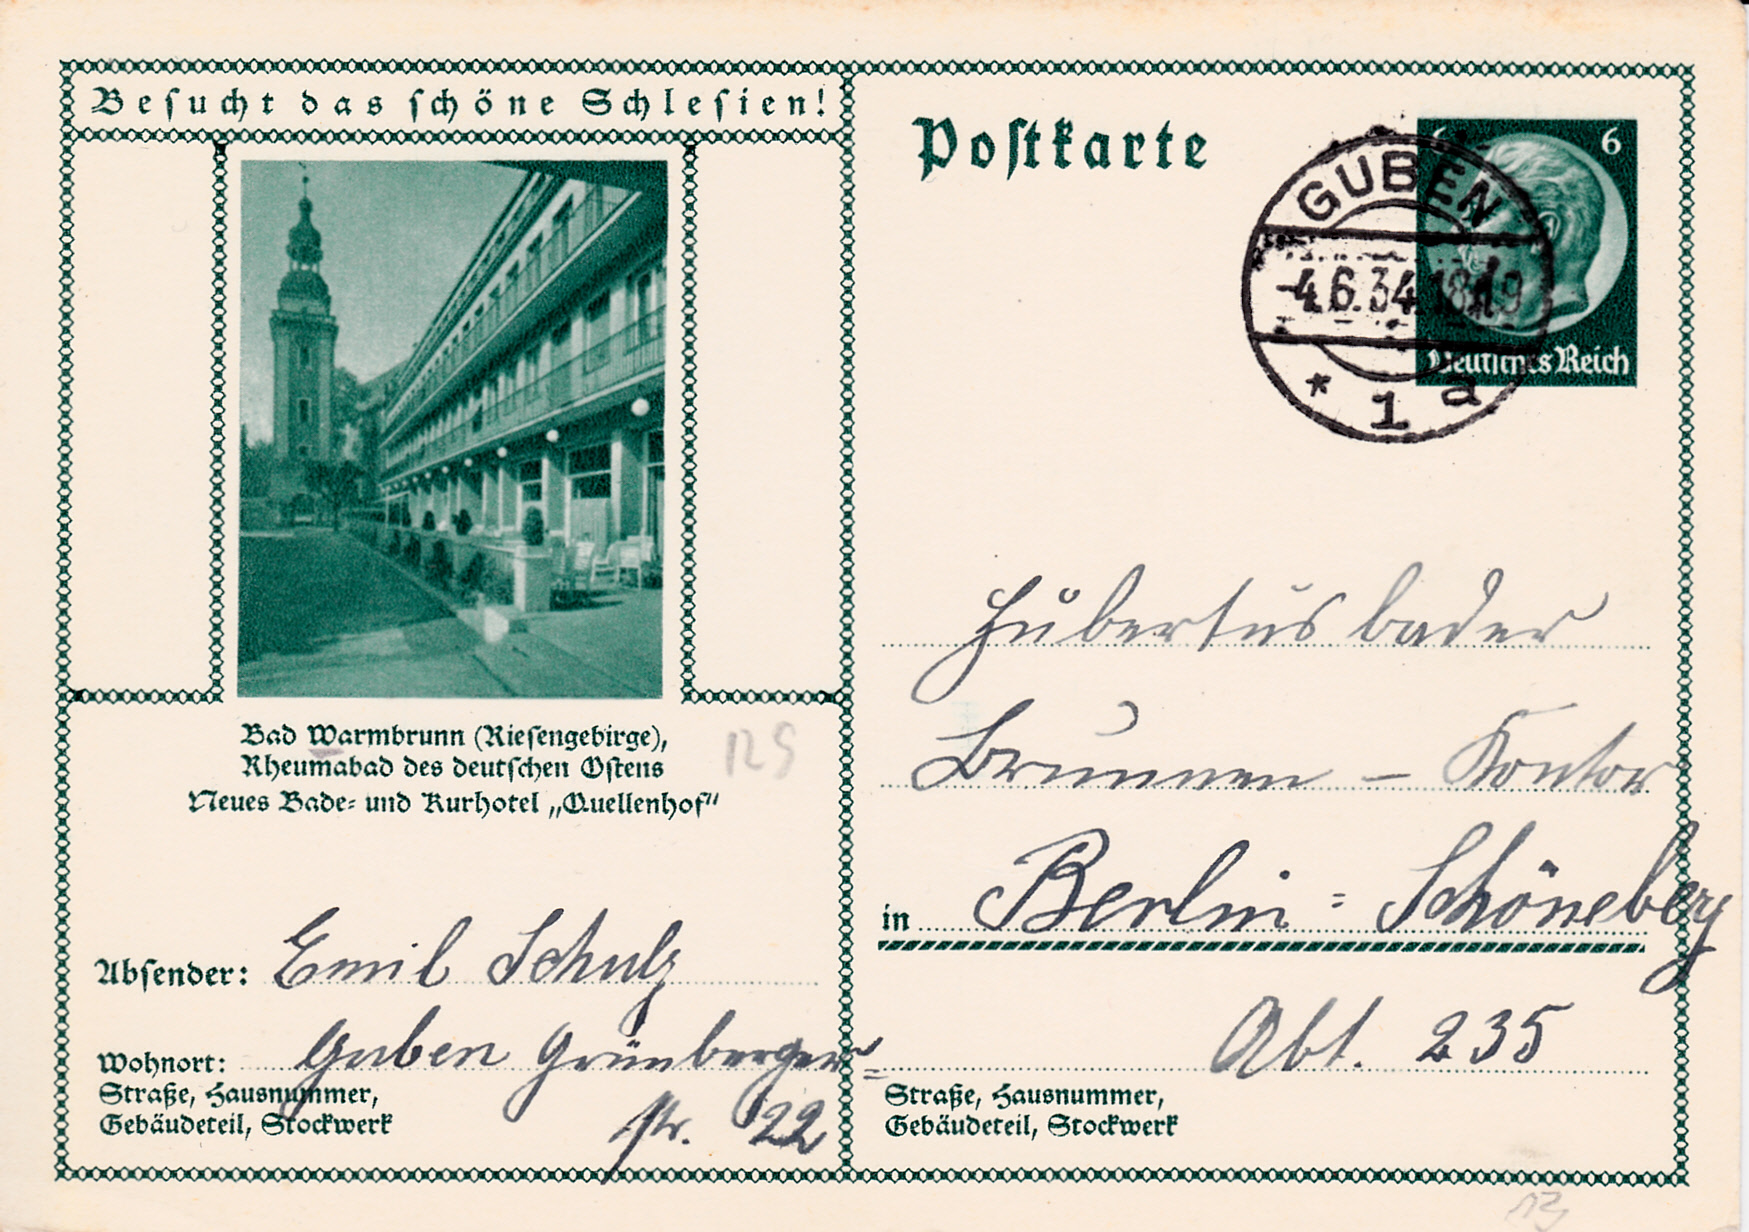 Besucht das schöne Schlesien!
Postkarte
6
GUBEN
-4.6.34.18-19
* 1 a
Deutsches Reich
Bad Warmbrunn (Riesengebirge),
Rheumabad des deutschen Ostens
Neues Bade- und Kurhotel „Quellenhof"
Hubertusbader
Brunnen - Kontor
in Berlin = Schöneberg
Abt. 235
Straße, Hausnummer,
Gebäudeteil, Stockwerk
Absender: Emil Schulz
Wohnort: Guben Grünberger=
Str. 22
Straße, Hausnummer,
Gebäudeteil, Stockwerk